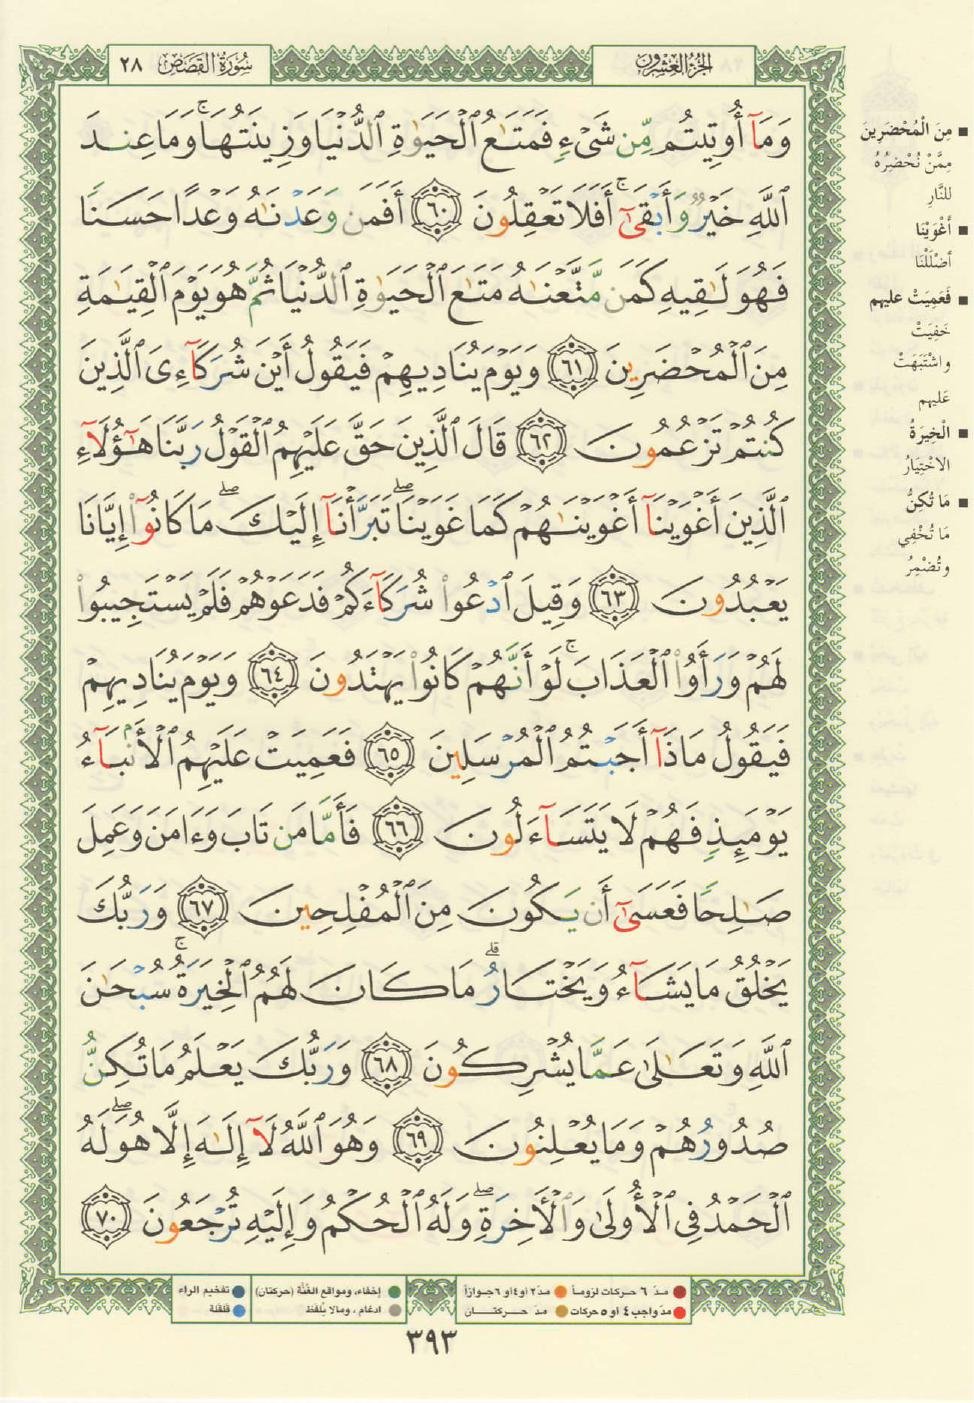 سُورَةُ القَصَصِ ٢٨
الجُزءُ العِشْرُونَ
وَمَآ أُوتِيتُم مِّن شَىْءٍ فَمَتَٰعُ ٱلْحَيَوٰةِ ٱلدُّنْيَا وَزِينَتُهَا ۚ وَمَا عِندَ
ٱللَّهِ خَيْرٌ وَأَبْقَىٰٓ ۚ أَفَلَا تَعْقِلُونَ ٦٠ أَفَمَن وَعَدْنَٰهُ وَعْدًا حَسَنًا
فَهُوَ لَٰقِيهِ كَمَن مَّتَّعْنَٰهُ مَتَٰعَ ٱلْحَيَوٰةِ ٱلدُّنْيَا ثُمَّ هُوَ يَوْمَ ٱلْقِيَٰمَةِ
مِنَ ٱلْمُحْضَرِينَ ٦١ وَيَوْمَ يُنَادِيهِمْ فَيَقُولُ أَيْنَ شُرَكَآءِىَ ٱلَّذِينَ
كُنتُمْ تَزْعُمُونَ ٦٢ قَالَ ٱلَّذِينَ حَقَّ عَلَيْهِمُ ٱلْقَوْلُ رَبَّنَا هَٰٓؤُلَآءِ
ٱلَّذِينَ أَغْوَيْنَآ أَغْوَيْنَٰهُمْ كَمَا غَوَيْنَا ۖ تَبَرَّأْنَآ إِلَيْكَ ۖ مَا كَانُوٓا۟ إِيَّانَا
يَعْبُدُونَ ٦٣ وَقِيلَ ٱدْعُوا۟ شُرَكَآءَكُمْ فَدَعَوْهُمْ فَلَمْ يَسْتَجِيبُوا۟
لَهُمْ وَرَأَوُا۟ ٱلْعَذَابَ ۚ لَوْ أَنَّهُمْ كَانُوا۟ يَهْتَدُونَ ٦٤ وَيَوْمَ يُنَادِيهِمْ
فَيَقُولُ مَاذَآ أَجَبْتُمُ ٱلْمُرْسَلِينَ ٦٥ فَعَمِيَتْ عَلَيْهِمُ ٱلْأَنۢبَآءُ
يَوْمَئِذٍ فَهُمْ لَا يَتَسَآءَلُونَ ٦٦ فَأَمَّا مَن تَابَ وَءَامَنَ وَعَمِلَ
صَٰلِحًا فَعَسَىٰٓ أَن يَكُونَ مِنَ ٱلْمُفْلِحِينَ ٦٧ وَرَبُّكَ
يَخْلُقُ مَا يَشَآءُ وَيَخْتَارُ ۗ مَا كَانَ لَهُمُ ٱلْخِيَرَةُ ۚ سُبْحَٰنَ
ٱللَّهِ وَتَعَٰلَىٰ عَمَّا يُشْرِكُونَ ٦٨ وَرَبُّكَ يَعْلَمُ مَا تُكِنُّ
صُدُورُهُمْ وَمَا يُعْلِنُونَ ٦٩ وَهُوَ ٱللَّهُ لَآ إِلَٰهَ إِلَّا هُوَ ۖ لَهُ
ٱلْحَمْدُ فِى ٱلْأُولَىٰ وَٱلْءَاخِرَةِ ۖ وَلَهُ ٱلْحُكْمُ وَإِلَيْهِ تُرْجَعُونَ ٧٠
■ مِنَ الْمُحْضَرِينَ
مِمَّنْ نُحْضِرُهُ
للنَّارِ
■ أَغْوَيْنَا
أضْلَلْنَا
■ فَعَمِيَتْ عليهم
خَفِيَتْ
واشْتَبَهَتْ
عَليهم
■ الْخِيَرَةُ
الاخْتِيَارُ
■ مَا تُكِنُّ
مَا تُخْفِي
وتُضْمِرُ
مدّ ٦ حركات لزوماً ● مدّ ٢ أو ٤ أو ٦ جوازاً
مدّ واجب ٤ أو ٥ حركات ● مدّ حركتان
إخفاء، ومواقع الغُنَّة (حركتان) ● تفخيم الراء
ادغام، ومالا يُلفَظ ● قلقلة
٣٩٣